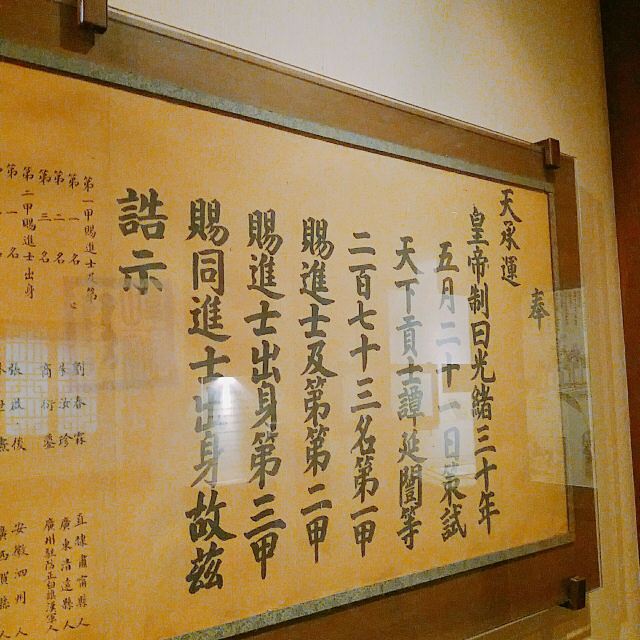 奉
天承運
皇帝制曰光緒三十年
五月二十一日策試
天下貢士譚延闓等
二百七十三名第一甲
賜進士及第第二甲
賜進士出身第三甲
賜同進士出身故茲
誥示
第一甲賜進士及第
第一名 劉春霖 直隸肅甯縣人
第二名 朱汝珍 廣東清遠縣人
第三名 商衍鎏 廣州駐防正白旗漢軍人
第二甲賜進士出身
第一名 張啟後 安徽泗州人